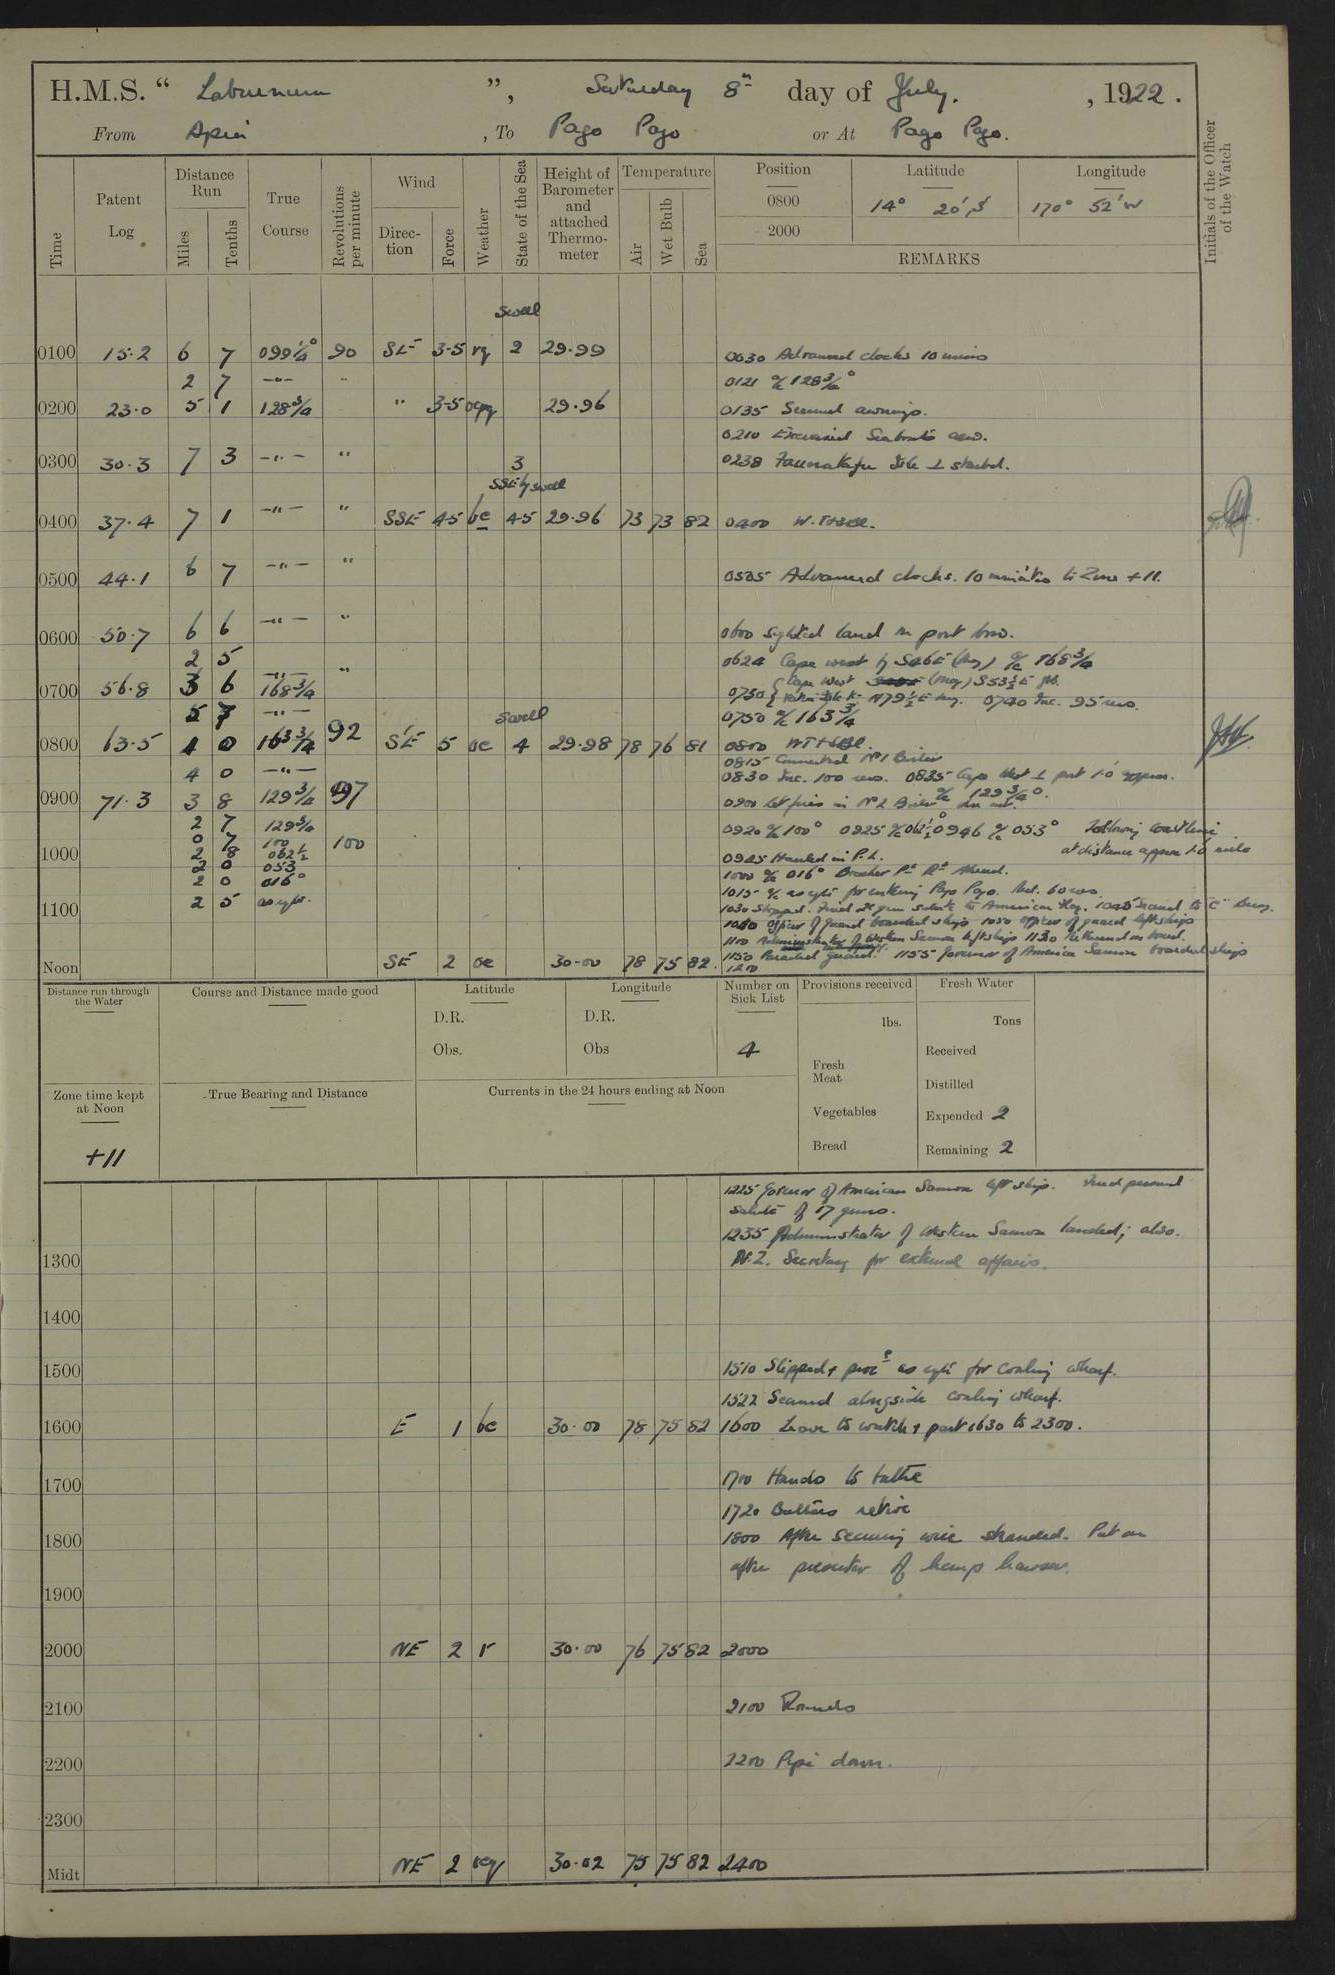 H.M.S. " Laburnum ", Saturday 8th day of July. , 1922.
From Apia , To Pago Pago or At Pago Pago.
Time
Patent Log
Distance Run
Miles
Tenths
True Course
Revolutions per minute
Wind
Direction
Force
Weather
State of the Sea
Height of Barometer and attached Thermometer
Temperature
Air
Wet Bulb
Sea
Position
0800
2000
Latitude
14° 20' S
Longitude
170° 52' W
REMARKS
Initials of the Officer of the Watch
Swell
0100 15.2 6 7 099 1/4° 90 SE 3-5 rq 2 29.99 0030 Advanced clocks 10 mins
2 7 -"- " 0121 a/c 128 3/4°
0200 23.0 5 1 128 3/4 " 3-5 ocpq 29.96 0135 awnings.
0210 Exercised Seaboats crew.
0300 30.3 7 3 -"- " 3 0238 Isle ⊥ starbd.
SSE'ly swell
0400 37.4 7 1 -"- " SSE 4-5 bc 4-5 29.96 73 73 82 0400
0500 44.1 6 7 -"- " 0505 Advanced clocks. 10 minutes to Zone +11.
0600 50.7 6 6 -"- " 0600 Sighted land on port bow.
2 5 -"- " 0624 Cape west by S46E (mag) a/c 168 3/4
0700 56.8 3 6 168 3/4 Cape West (mag) S53½E
0730 N79½E mag. 0740 Inc. 95 revs.
5 7 -"- 0750 a/c 163 3/4
Swell
0800 63.5 1 0 163 3/4 92 SE 5 oc 4 29.98 78 76 81 0800
0815 Connected No 1 Boiler
4 0 -"- 0830 Inc. 100 revs. 0835 Cape West ⊥ port 1.0 approx.
a/c 129 3/4°.
0900 71.3 3 8 129 3/4 97 0900 Let fires in No 2 Boiler
2 7 129 3/4 0920 a/c 100° 0925 a/c 062½° 0946 a/c 053° Following coastline
0 7 100 100 at distance approx 1.0 mile
1000 2 8 062½ 0945 Hauled in P.L.
2 0 053 1000 a/c 016° Breaker Pt Rt Ahead.
2 0 016° 1015 a/c as req. for entering Pago Pago. Red. 60 revs.
1100 2 5 as req. 1030 Stopped. Fired 21 gun salute to American Flag. 1045 Secured to "C" Buoy.
Officer of guard boarded ship 1050 Officer of guard left ship
1100 Administrator of Western Samoa left ship 1130 Returned on board.
1150 Paraded guard. 1155 Governor of American Samoa boarded ship
Noon SE 2 oc 30.00 78 75 82. 1200
Distance run through the Water
Course and Distance made good
Latitude
D.R.
Obs.
Longitude
D.R.
Obs
Number on Sick List
4
Provisions received
lbs.
Fresh Meat
Vegetables
Bread
Fresh Water
Tons
Received
Distilled
Expended 2
Remaining 2
Zone time kept at Noon
+11
True Bearing and Distance
Currents in the 24 hours ending at Noon
1225 Governor of American Samoa left ship. Fired personal
salute of 17 guns.
1235 Administrator of Western Samoa landed; also.
1300 N.Z. Secretary for external affairs.
1400
1500 1510 Slipped & procd as req for coaling wharf.
1522 Secured alongside coaling wharf.
1600 E 1 bc 30.00 78 75 82 1600 Leave to watch & part 1630 to 2300.
1700 1700 Hands to bathe
1720 Bathers retire
1800 1800 After securing wire stranded. Put on
after preventer of hemp hawser.
1900
2000 NE 2 r 30.00 76 75 82 2000
2100 2100 Rounds
2200 2200 Pipe down.
2300
Midt NE 2 ocq 30.02 75 75 82 2400